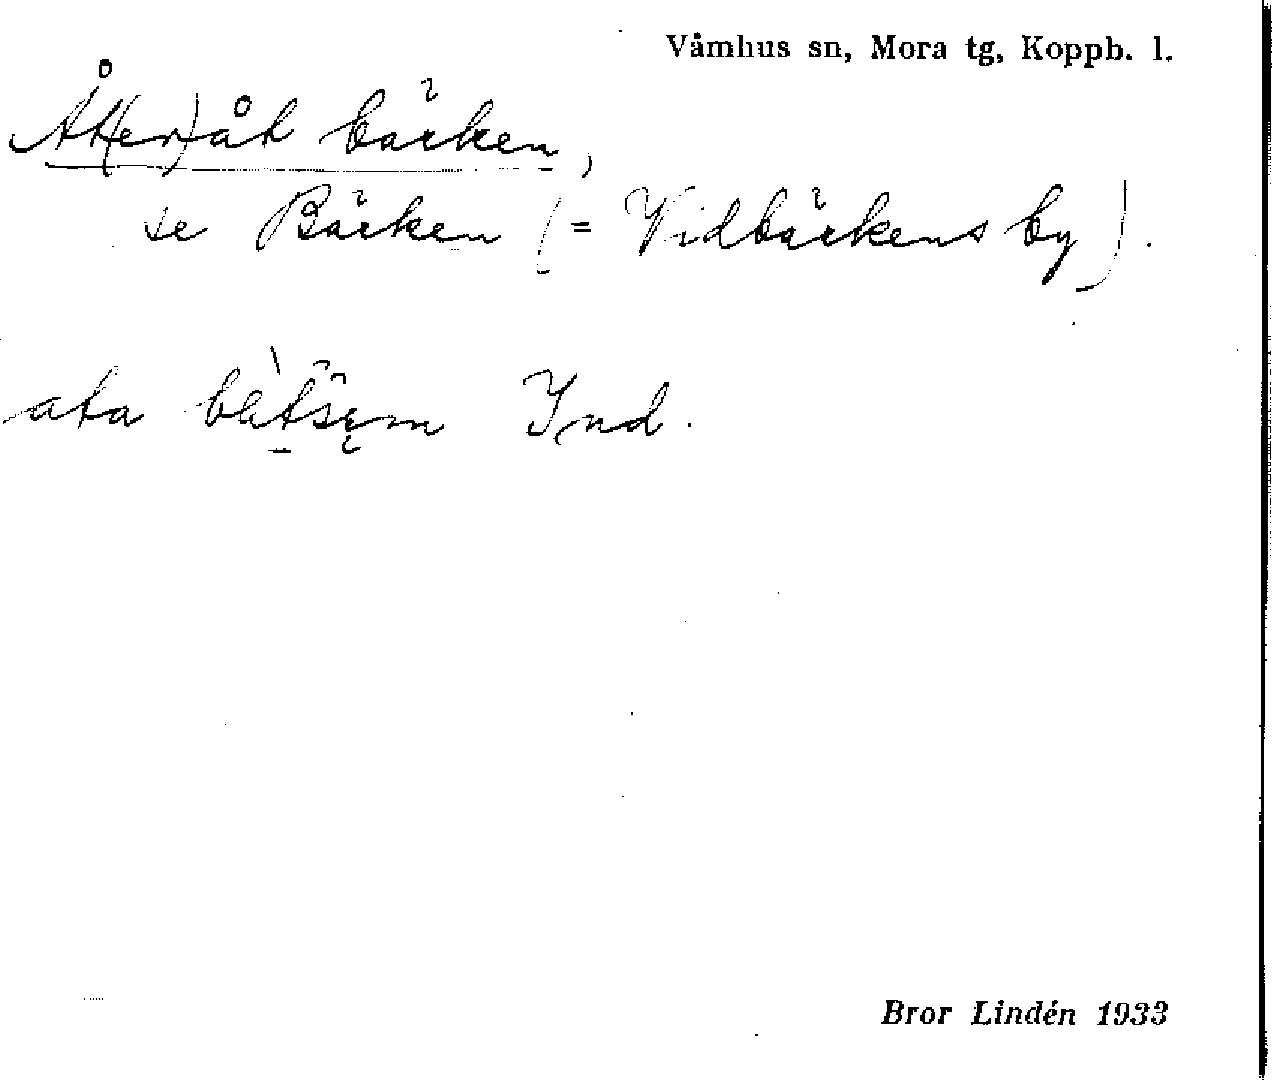 Våmhus sn, Mora tg, Koppb. l.
Åt(er)åt bäcken,
se Bäcken (= Vidbäckens by).
ata Ind.
Bror Lindén 1933